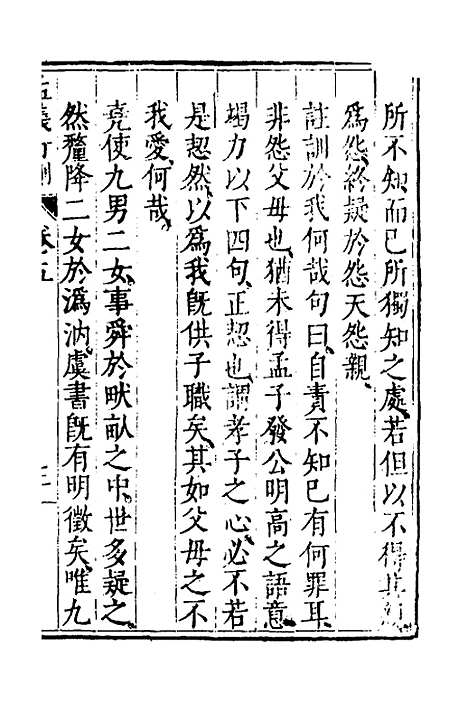 所不知而已所獨知之處若但以不得其
爲怨終疑於怨天怨親
註訓於我何哉句曰自責不知已有何罪耳
非怨父毋也猶未得孟子發公明高之語意
竭力以下四句正恝也謂孝子之心必不若
是恝然以爲我旣供子職矣其如父毋之不
我愛何哉
堯使九男二女事舜於畎畝之中世多疑之
然釐降二女於溈汭虞書旣有明徵矣唯九